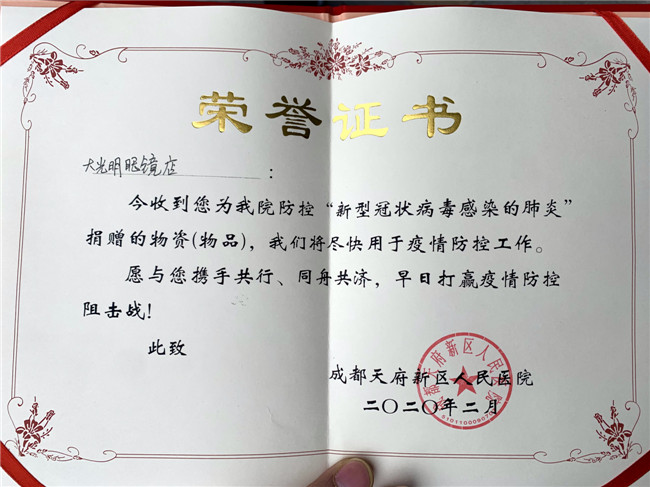 荣誉证书
大光明眼镜店：
今收到您为我院防控“新型冠状病毒感染的肺炎”
捐赠的物资(物品)，我们将尽快用于疫情防控工作。
愿与您携手共行、同舟共济，早日打赢疫情防控
阻击战！
此致
成都天府新区人民医院
二〇二〇年二月
成都天府新区人民医院